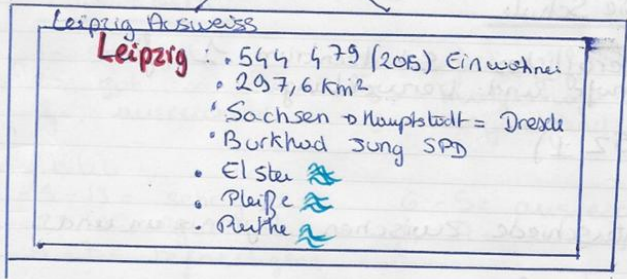 Leipzig Ausweiss
Leipzig : • 544 479 (205) Einwohner
• 297,6 Km²
• Sachsen → Hauptstadt = Dresde
• Burkhad Jung SPD
• Elster
• Pleiße
• Parthe